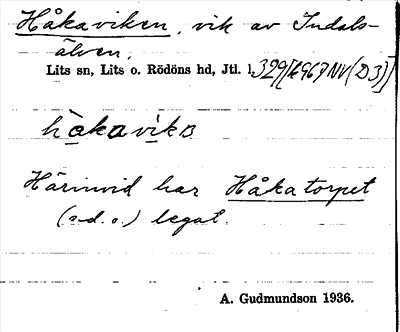 Håkaviken, vik av Indals-
älven.
Lits sn, Lits o. Rödöns hd, Jtl. l
håkavikɜ
Härinvid har Håkatorpet
(s.d.o.) legat.
A. Gudmundson 1936.